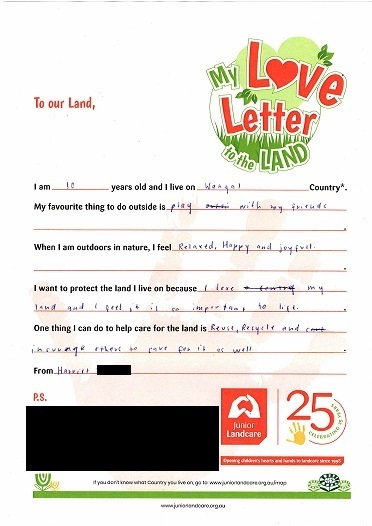 My Love
Letter
to the LAND
To our Land,
I am 10 years old and I live on Wangal Country*.
My favourite thing to do outside is play with my friends
.
When I am outdoors in nature, I feel Relaxed, Happy and joyfull.
.
I want to protect the land I live on because I love my
land and I feel it is so important to life.
One thing I can do to help care for the land is Reuse, Recycle and
incourage others to care for it as well.
From Harriet
P.S.
Junior
Landcare
25 YEARS
CELEBRATING
Opening children's hearts and hands to landcare since 1998
If you don't know what Country you live on, go to: www.juniorlandcare.org.au/map
www.juniorlandcare.org.au